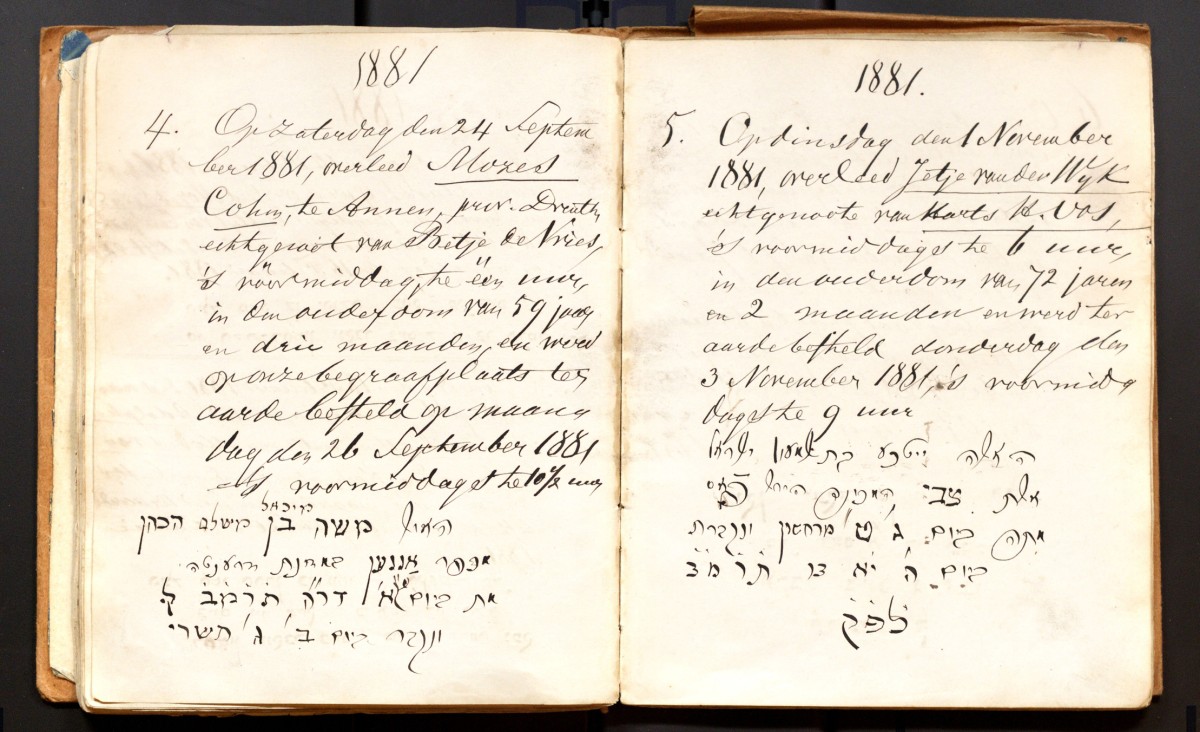 1881
4. Op Zaterdag den 24 Septem
ber 1881, overleed Mozes
Cohn, te Annen, prov. Drenth,
echtgenoot van Betje de Vries,
's voormiddag, te één uur,
in den ouderdom van 59 jaar
en drie maanden, en werd
op onze begraafplaats ter
aarde besteld op maan
dag den 26 September 1881
's voormiddags te 10½ uur
מיכאל
משה בן משלם הכהן
מכפר אננען במדינת דרענטה
מת ביום א' דר"ה תרמב ל
ונקבר ביום ב' ג' תשרי
1881.
5. Op dinsdag den 1 November
1881, overleed Jetje van der Wyk
echtgenoote van Harts H. Vos,
's voormiddags te 6 uur,
in den ouderdom van 72 jaren
en 2 maanden en werd ter
aarde besteld donderdag den
3 November 1881, 's voormid
dags te 9 uur
האשה ייטכע בת שמעון ישראל
אשת צבי המכונה
מתה ביום ג' ט' מרחשון ונקברת
ביום ה' יא בו תרמב
לפק